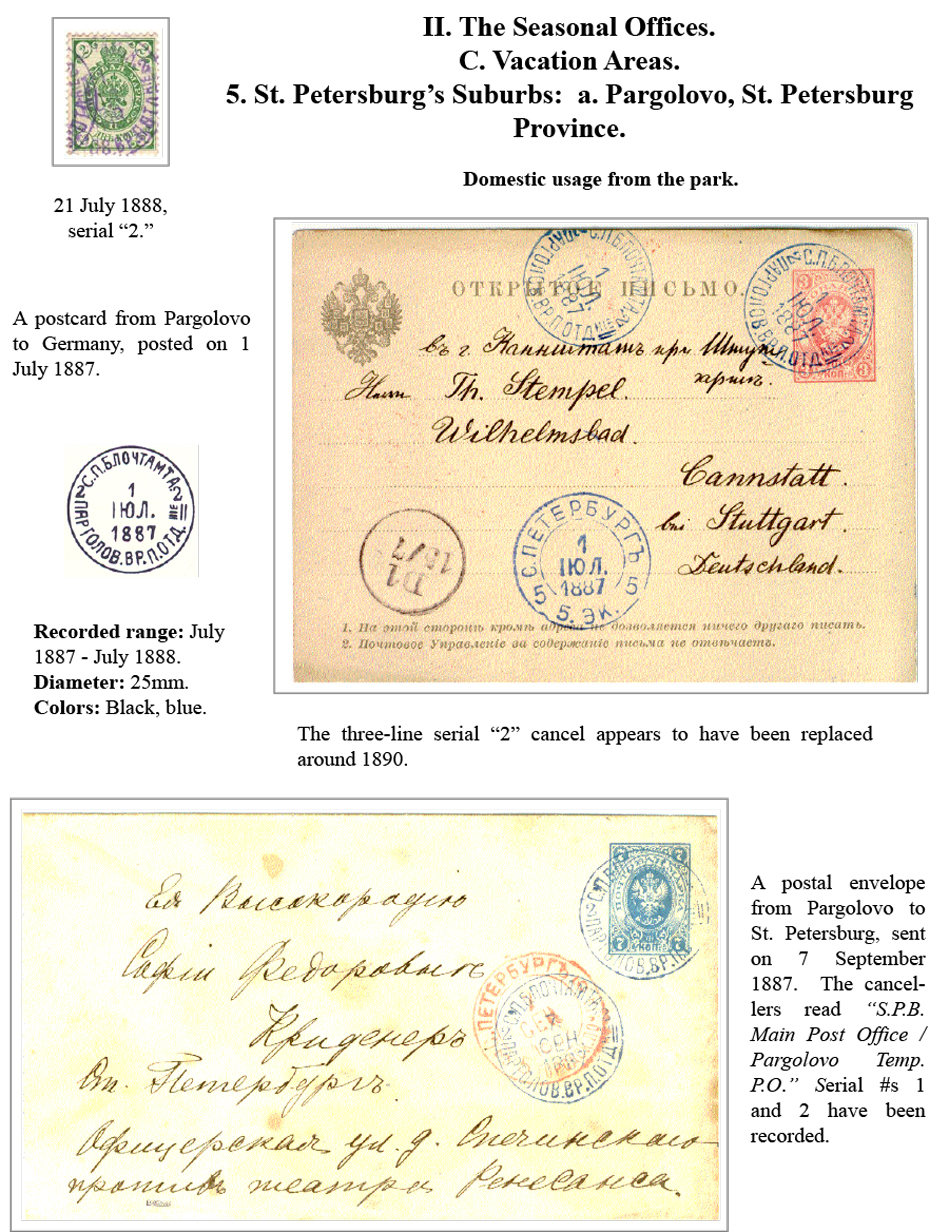 II. The Seasonal Offices.
C. Vacation Areas.
5. St. Petersburg’s Suburbs: a. Pargolovo, St. Petersburg
Province.
Domestic usage from the park.
21 July 1888,
serial “2.”
A postcard from Pargolovo
to Germany, posted on 1
July 1887.
С.П.Б.ПОЧТАМТА.
2 2
1
ІЮЛ.
1887
ПАРГОЛОВ.ВР.П.ОТД.
Recorded range: July
1887 - July 1888.
Diameter: 25mm.
Colors: Black, blue.
ОТКРЫТОЕ ПИСЬМО.
С.П.Б.ПОЧТАМТА.
1
ІЮЛ.
1887
ПАРГОЛОВ.ВР.П.ОТД.
3 3
3 КОП. 3
въ г. Каннштатъ при Штут
Herrn Th. Stempel.
Wilhelmsbad.
Cannstatt.
bei Stuttgart.
Deutschland.
С.ПЕТЕРБУРГЪ
1
ІЮЛ.
1887
5 5
5. ЭК.
1. На этой сторонѣ кромѣ адреса не дозволяется ничего другаго писать.
2. Почтовое Управленіе за содержаніе письма не отвѣчаетъ.
The three-line serial “2” cancel appears to have been replaced
around 1890.
7 7
7 КОП. 7
Ея Высокородію
Софіи Федоровнѣ
Криденеръ
Ст. Петербургъ.
Офицерская ул. д. Спечинскаго
противъ театра Ренесанса.
A postal envelope
from Pargolovo to
St. Petersburg, sent
on 7 September
1887. The cancel-
lers read “S.P.B.
Main Post Office /
Pargolovo Temp.
P.O.” Serial #s 1
and 2 have been
recorded.